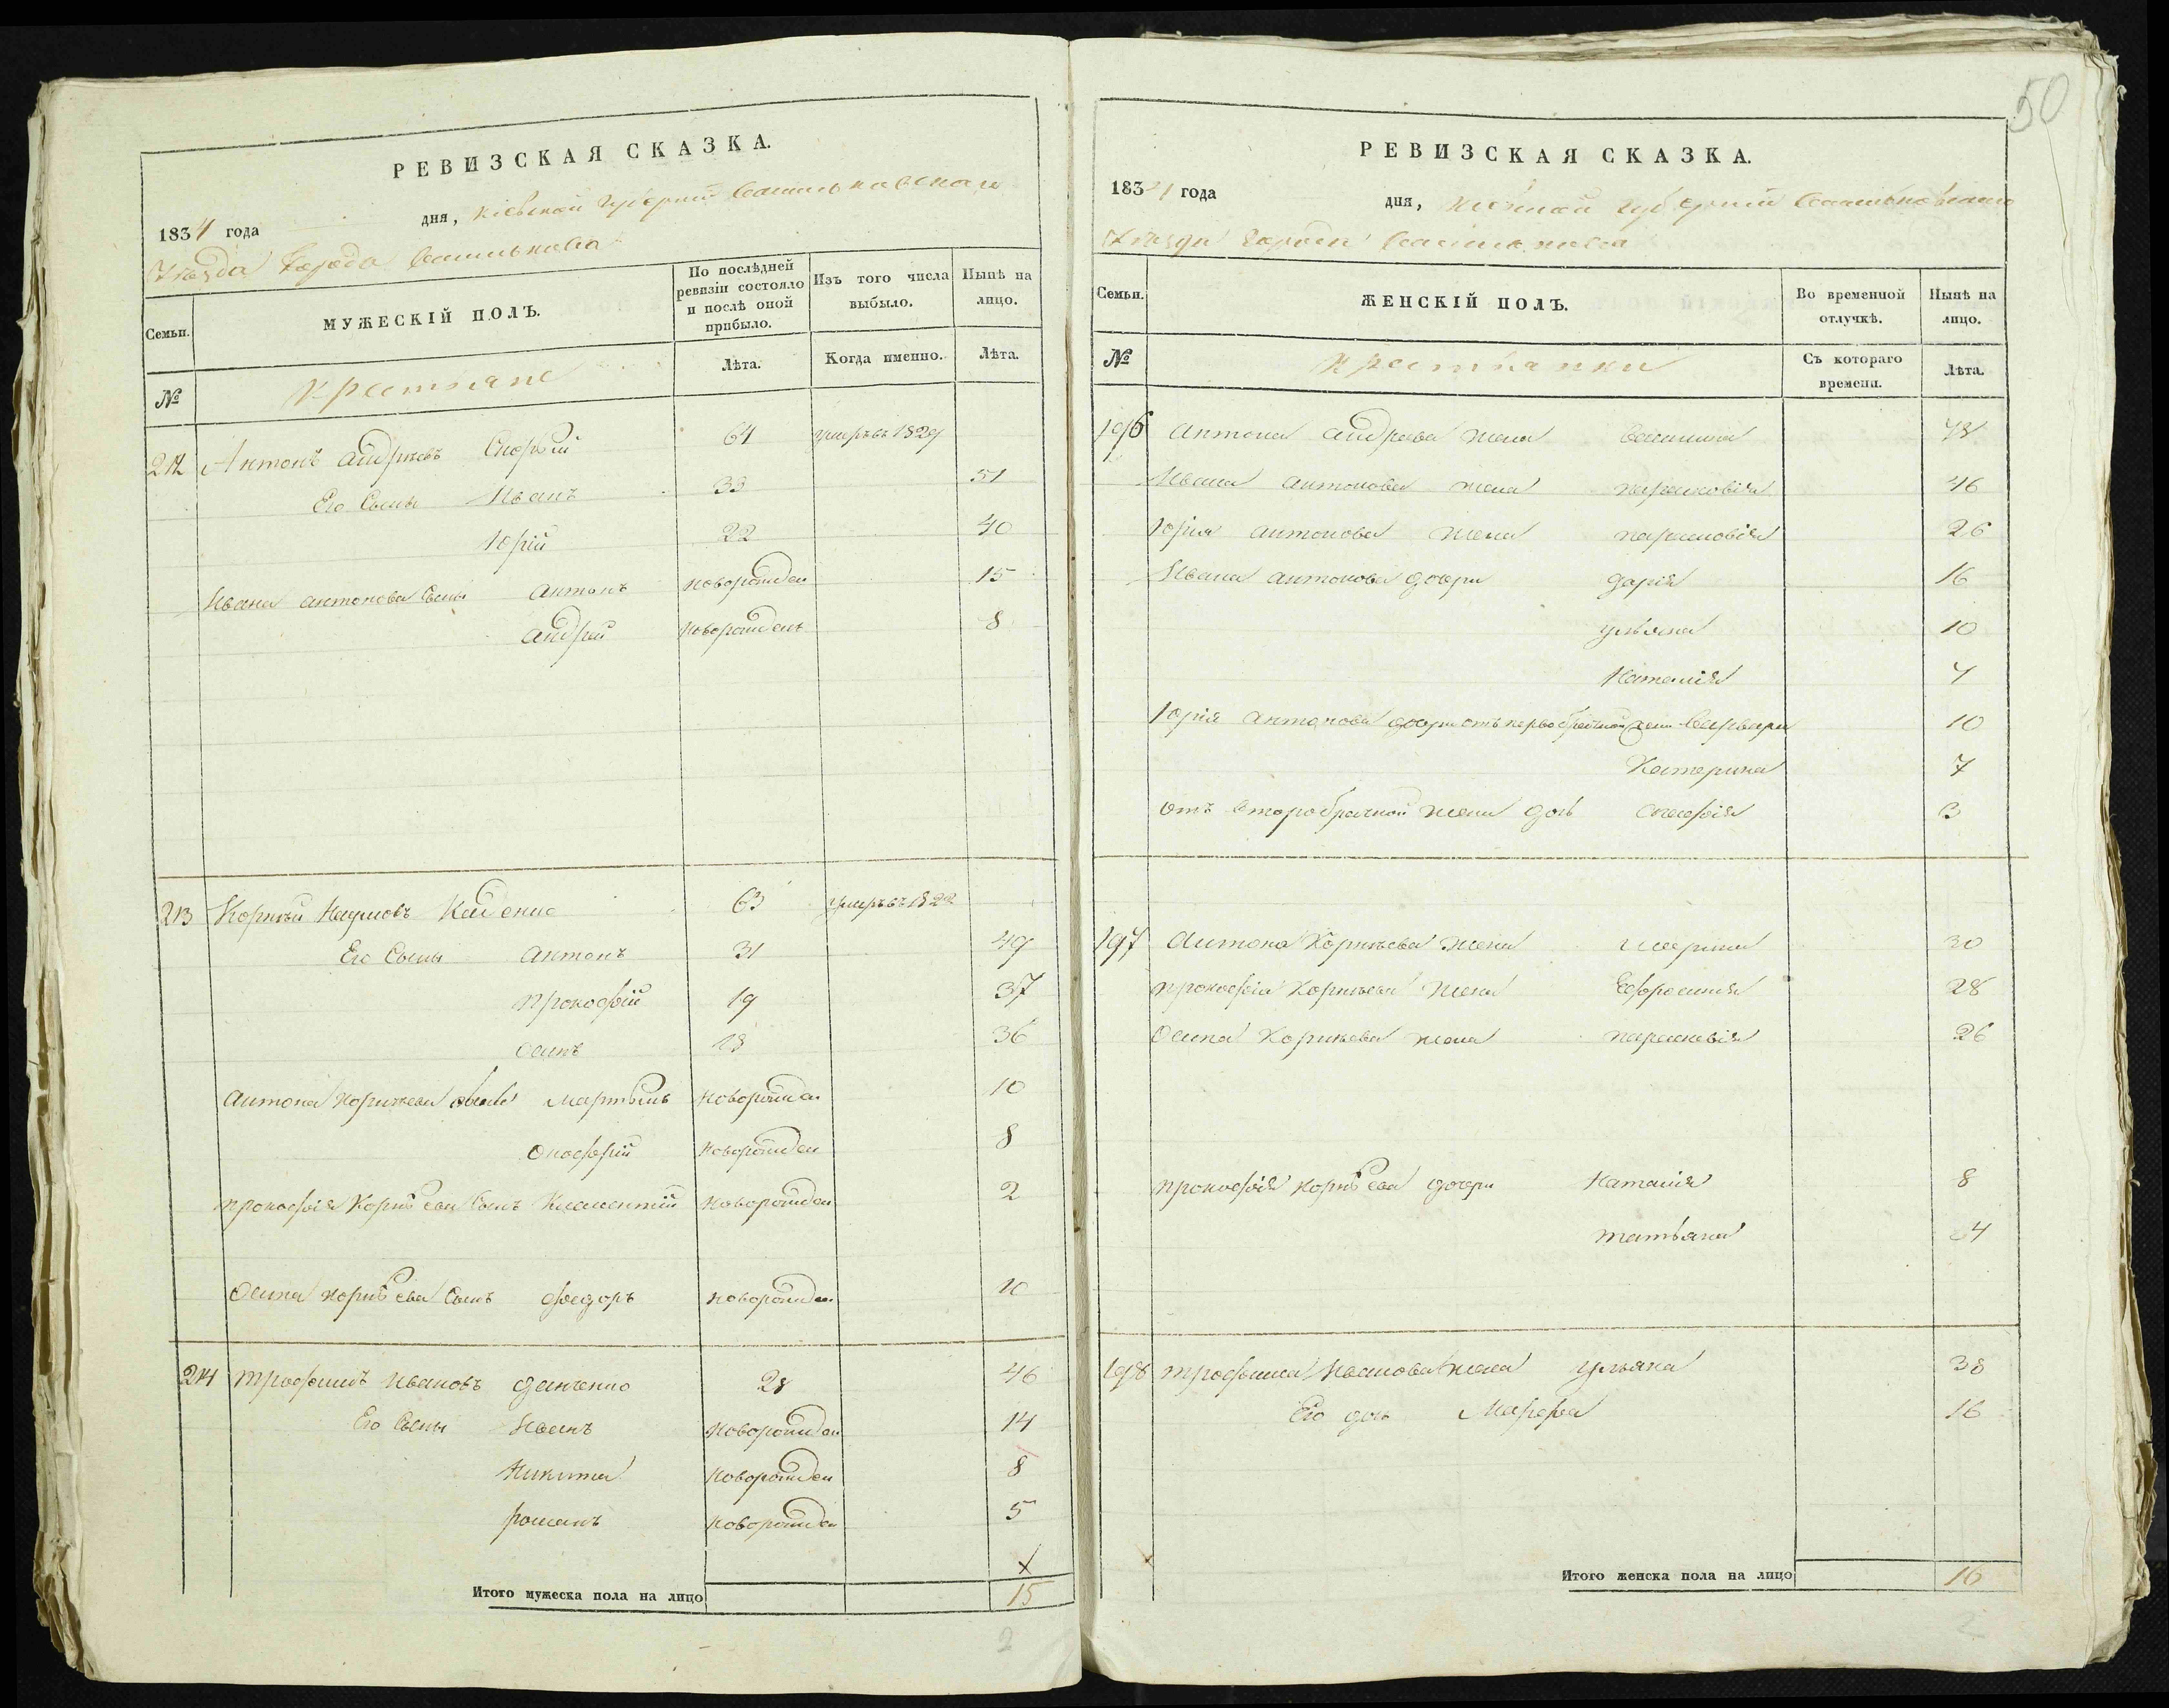 РЕВИЗСКАЯ СКАЗКА.
1834 года дня, Кіевской Губерніи Васильковскаго
Уѣзда Города Василькова
Семьи. МУЖЕСКІЙ ПОЛЪ. По послѣдней ревизіи состояло и послѣ оной прибыло. Изъ того числа выбыло. Нынѣ на лицо.
№ Крестьяне Лѣта. Когда именно. Лѣта.
212 Антонъ Андрѣевъ 64 умеръ въ 1829
Его Сыны Иванъ 33 51
Юрій 22 40
Ивана Антонова Сыны Антонъ новорожден 15
Андрей новорожденъ 8
213 Корнѣй Наумовъ 63 умеръ въ 1822
Его Сыны Антонъ 31 49
Прокофій 19 37
Осипъ 18 36
Антона Корнѣева Мартынъ новорожден 10
Онофрій новорожден 8
Прокофія Корнѣева Сынъ Климентій новорожден 2
Осипа Корнѣева Сынъ Федоръ новорожден 10
214 Трофимъ Ивановъ Данченко 28 46
Его Сыны Иванъ новорожден 14
Никита новорожден 8
Романъ новорожден 5
Итого мужеска пола на лицо 15
2
50
РЕВИЗСКАЯ СКАЗКА.
1834 года дня, Кіевской Губерніи Васильковскаго
Уѣзда Города Василькова
Семьи. ЖЕНСКІЙ ПОЛЪ. Во временной отлучкѣ. Нынѣ на лицо.
№ Крестьянки Съ котораго времени. Лѣта.
196 Антона Андреева жена
Ивана Антонова жена Парасковія 46
Юрія Антонова жена Парасковія 26
Ивана Антонова дочери Дарія 16
Ульяна 10
Наталія
Юрія Антонова дочери отъ первобрачной жени Варвара 10
Катерина 7
Отъ второбрачной жени дочь 3
197 Антона Корнѣева жена Марина 30
Прокофія Корнѣева жена Ефросинія 28
Осипа Корнѣева жена Парасковія 26
Прокофія Корнѣева дочери Наталія 8
Татьяна 4
198 Трофима Иванова жена Ульяна 38
Его дочь Марфа 16
Итого женска пола на лицо 16
2